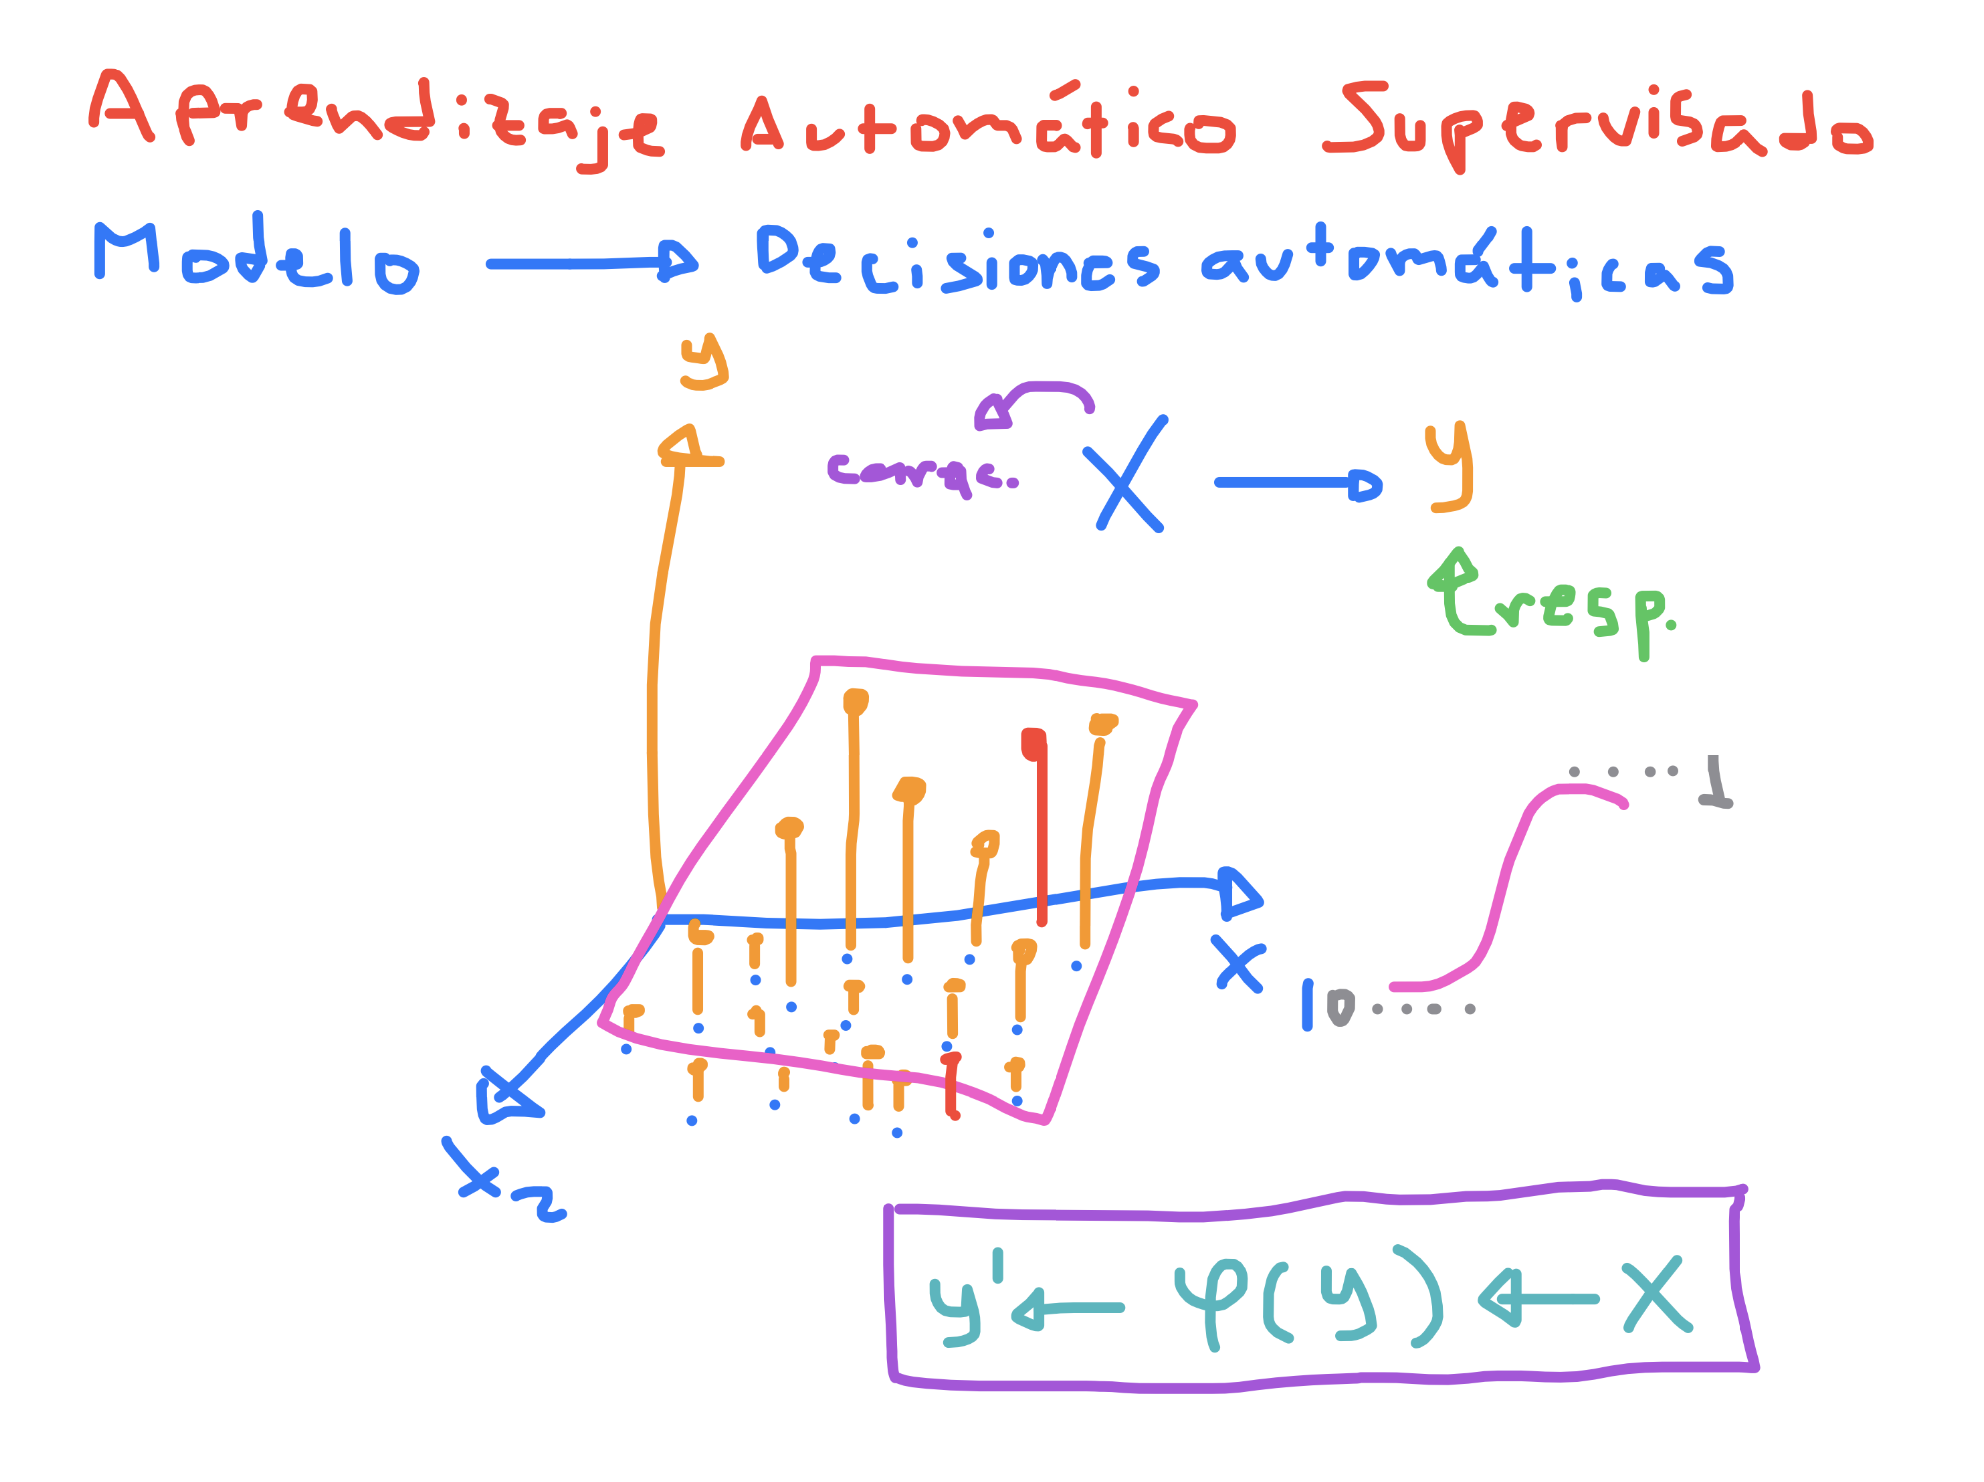 Aprendizaje Automático Supervisado
Modelo → Decisiones automáticas
y
X → y
resp.
1
X1
0
X2
y' ← φ(y) ← X